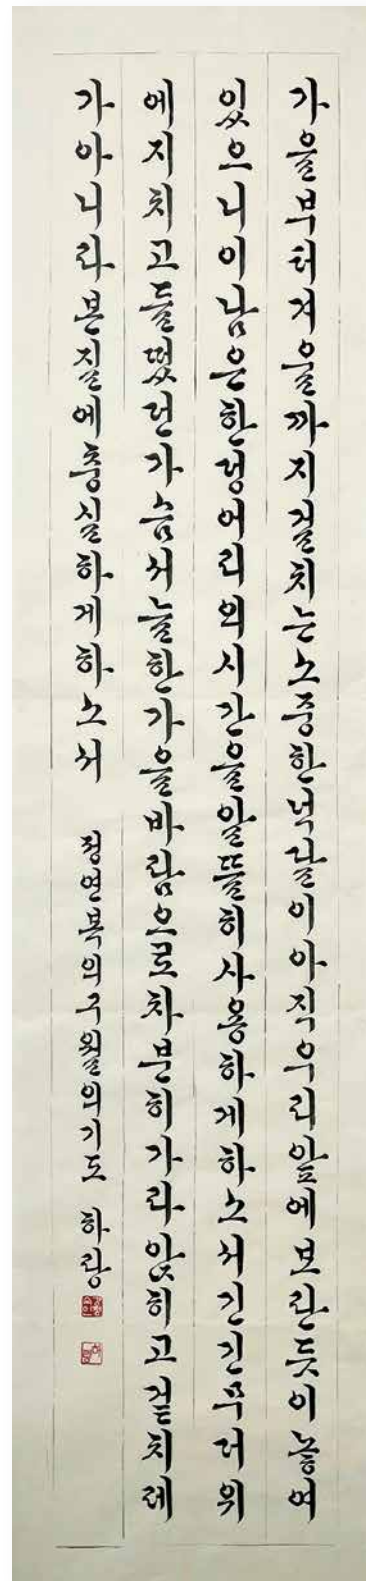 가을부터겨울까지걸치는소중한넉달이아직우리앞에보란듯이놓여
있으니이남은한덩어리의시간을알뜰히사용하게하소서긴긴무더위
에지치고들떴던가슴서늘한가을바람으로차분히가라앉히고겉치레
가아니라본질에충실하게하소서 정연복의구월의기도 하랑